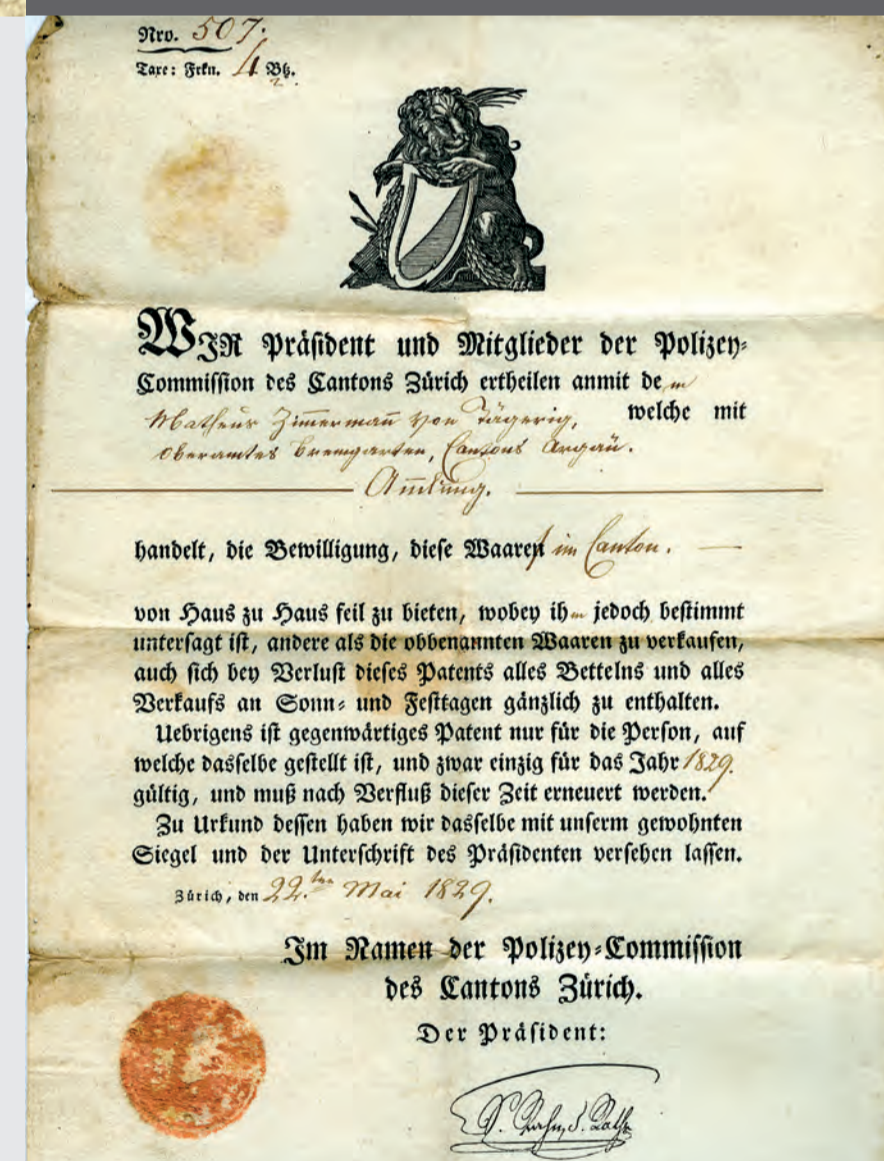 Nro. 507.
Taxe: Frkn. 4 Btz.
WIR Präsident und Mitglieder der Polizey-
Commission des Cantons Zürich ertheilen anmit dem
Matheus Zimmermañ von Tägerig, welche mit
Oberamtes Bremgarten, Cantons Argäu.
handelt, die Bewilligung, diese Waaren im Canton.
von Haus zu Haus feil zu bieten, wobey ihm jedoch bestimmt
untersagt ist, andere als die obbenannten Waaren zu verkaufen,
auch sich bey Verlust dieses Patents alles Bettelns und alles
Verkaufs an Sonn- und Festtagen gänzlich zu enthalten.
Uebrigens ist gegenwärtiges Patent nur für die Person, auf
welche dasselbe gestellt ist, und zwar einzig für das Jahr 1829.
gültig, und muß nach Verfluß dieser Zeit erneuert werden.
Zu Urkund dessen haben wir dasselbe mit unserm gewohnten
Siegel und der Unterschrift des Präsidenten versehen lassen.
Zürich, den 22.ten Mai 1829.
Im Namen der Polizey-Commission
des Cantons Zürich.
Der Präsident: